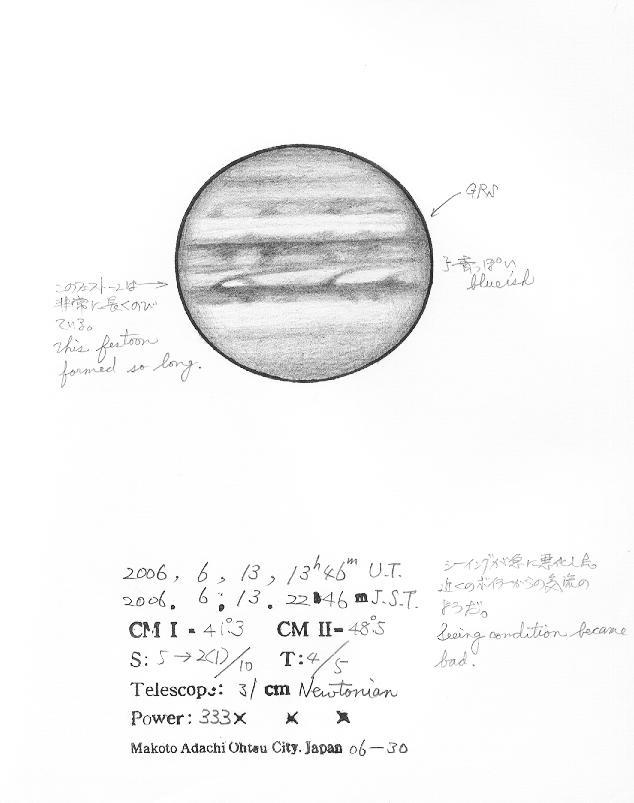 GRS
青っぽい
blueish
このフェストーンは
非常に長くのび
ている。
This festoon
formed so long.
2006, 6, 13, 13h46m U.T.
2006. 6. 13. 22 46 m J.S.T.
CM I = 41°.3 CM II = 48°.5
S: 5→2(1)/10 T: 4/5
Telescope: 31 cm Newtonian
Power: 333× × ×
Makoto Adachi Ohtsu City. Japan 06-30
シーイングが急に悪化した。
近くのボイラーからの気流の
ようだ。
Seeing condition became
bad.